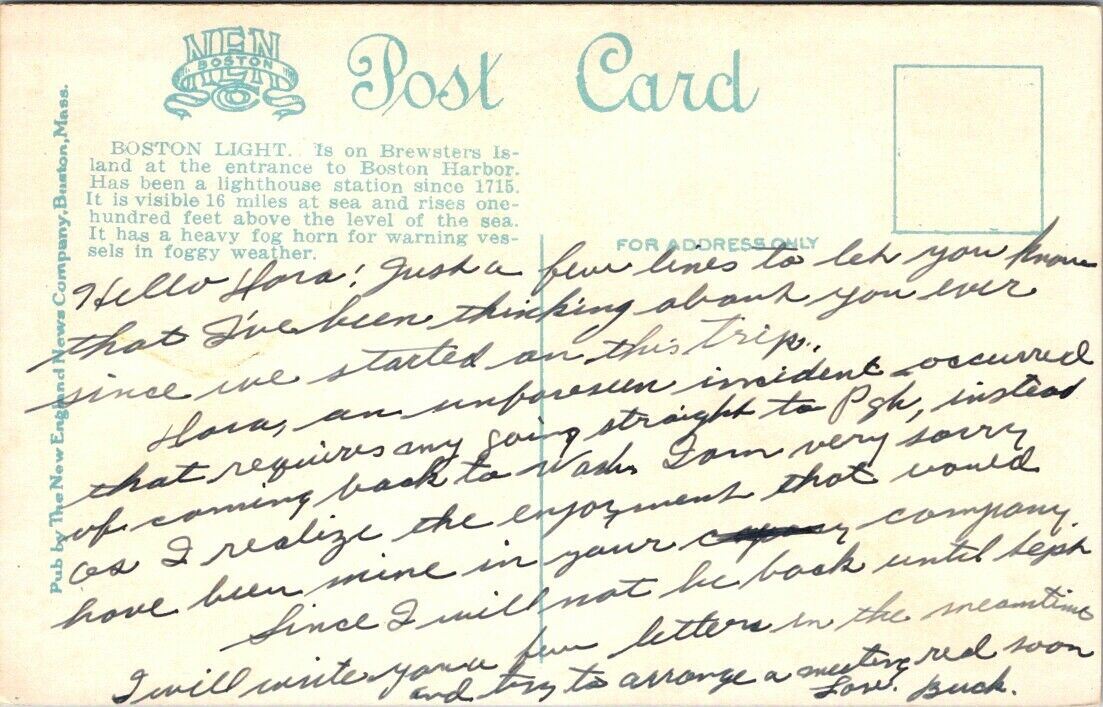 NEN
BOSTON
Post Card
BOSTON LIGHT. Is on Brewsters Is-
land at the entrance to Boston Harbor.
Has been a lighthouse station since 1715.
It is visible 16 miles at sea and rises one-
hundred feet above the level of the sea.
It has a heavy fog horn for warning ves-
sels in foggy weather.
Pub by The New England News Company, Boston, Mass.
FOR ADDRESS ONLY
Hello Hora! Just a few lines to let you know
that I've been thinking about you ever
since we started on this trip.
Hora, an unforeseen incident occurred
that requires my going straight to Pgh, instead
of coming back to Wash. I am very sorry
as I realize the enjoyment that would
have been mine in your company.
Since I will not be back until Sept
I will write you a few letters in the meantime
and try to arrange a meeting real soon
Love. Buck.